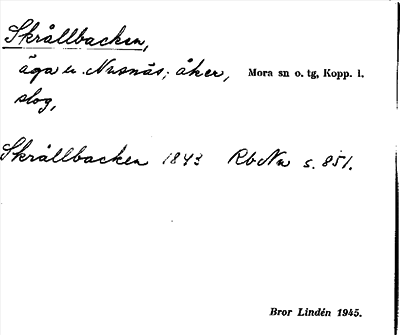 Skrållbacken,
äga u. Nusnäs; åker, Mora sn o. tg, Kopp. l.
slog,
Skrållbacken 1843 RbNu s. 851.
Bror Lindén 1945.